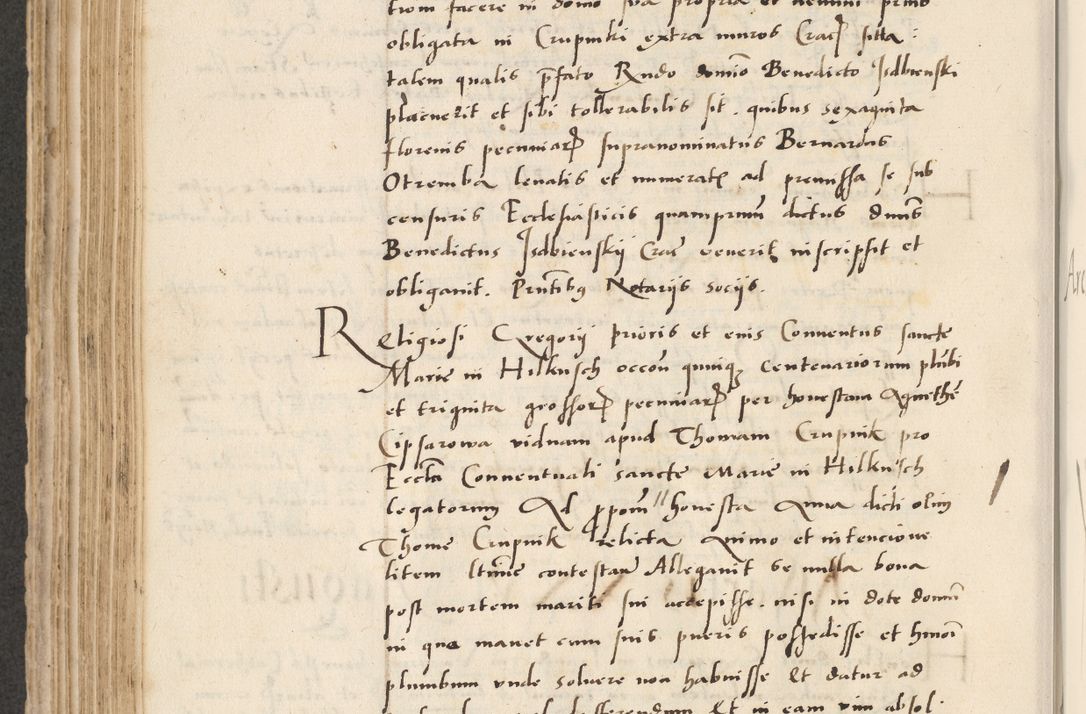 tiom facere in domo sua propria et nemini prius
obligata in Crupniki extra muros Crac sitta :
talem qualis pfato Rndo domio Benedicto Jsdbienski
placuerit et sibi tollerabilis sit . quibus sexaginta
florenis pecuniar supranominatus Bernardus
Otremba leuatis et numerat ad premissa se sub
censuris Ecclesiasticis quamprimu dictus dnus
Benedictus Jsdbienskij Crac venerit inscripsit et
obligauit . Pntibus Notarijs socijs .
Religiosi Gregorij prioris et eius Conuentus sancte
Marie in Hilkusch occon quinque Centenariorum plubi
et triginta grossor pecuniar per honestam Agnethe
Cipsarowa viduam apud Thomam Crupnik pro
Eccla Conuentuali sancte Marie in Hilkusch
legatorum Ad ppom honesta Anna dicti olim
Thome Crupnik relicta Animo et intencione
litem ltime contestan Allegauit se nulla bona
post mortem mariti sui accepisse . nisi in dote domu
in qua manet cum suis pueris possedisse et hmoi
plumbum vnde soluere non habuisse Et datur ad
et in eam vim absol